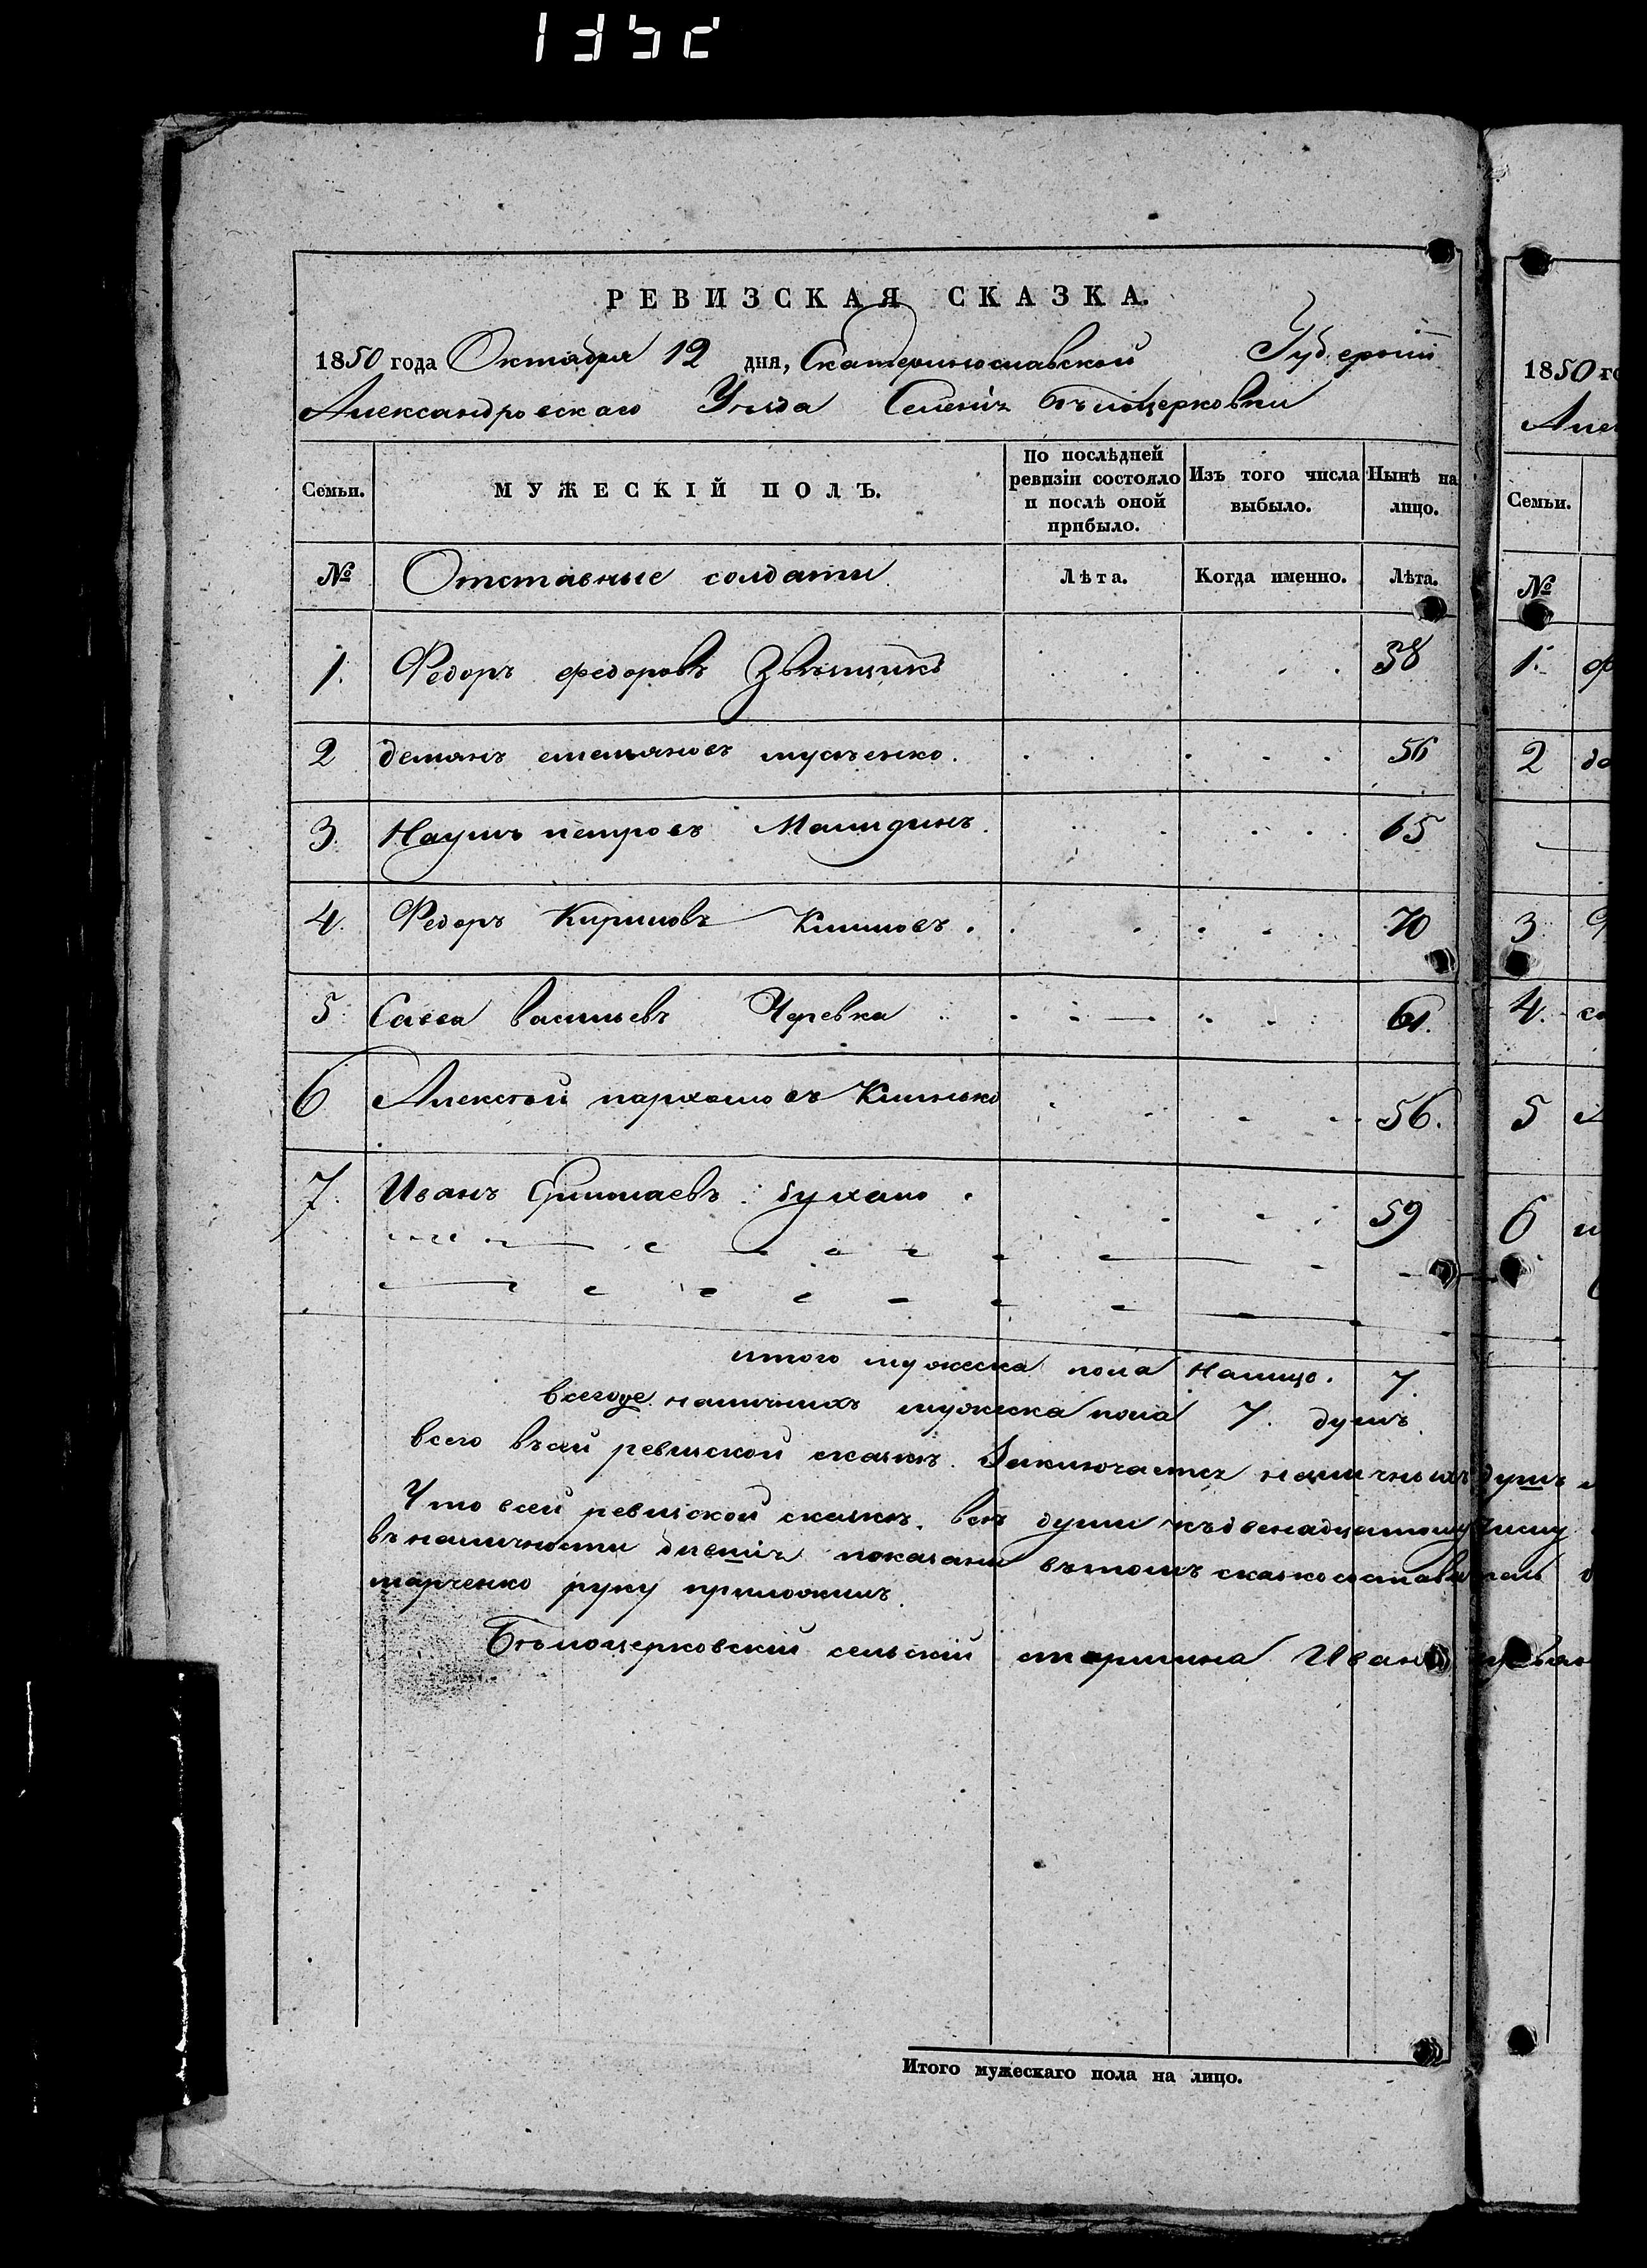 1352
РЕВИЗСКАЯ СКАЗКА.
1850 года Октября 12 дня, Екатеринославской Губернiи
Александровскаго Уезда Селенiя Бѣлоцерковки
Семьи.
МУЖЕСКIЙ ПОЛЪ.
По послѣдней ревизiи состояло и послѣ оной прибыло.
Изъ того числа выбыло.
Нынѣ на лицо.
№ Отставные солдати Лѣта. Когда именно. Лѣта.
1. Федоръ федоровъ 58
2 демянъ емельяновъ мусѣенко. 56
3. Наумъ петровъ 65
4. Федоръ Кириловъ Климовъ. 70
5. Савва васильевъ Черевка 61.
6 Алексѣй пархомовъ Климко 56.
7. Иванъ Ермолаевъ 59
итого мужеска пола Налицо. 7.
всегоже наличнихъ мужеска пола 7. душъ.
всего въсей ревиской сказкѣ. Заключается наличнихъ душъ
Что всей ревиской сказкѣ. всѣ души къдвенадцатому числу
въналичности бывшiя показани вътомъ сказкосоставитель
марченко руку приложилъ.
Бѣлоцерковскiй сельскiй старшина Иванъ
Итого мужескаго пола на лицо.
1850 го
Алек
Семьи.
№
1.
2
3
4.
5
6